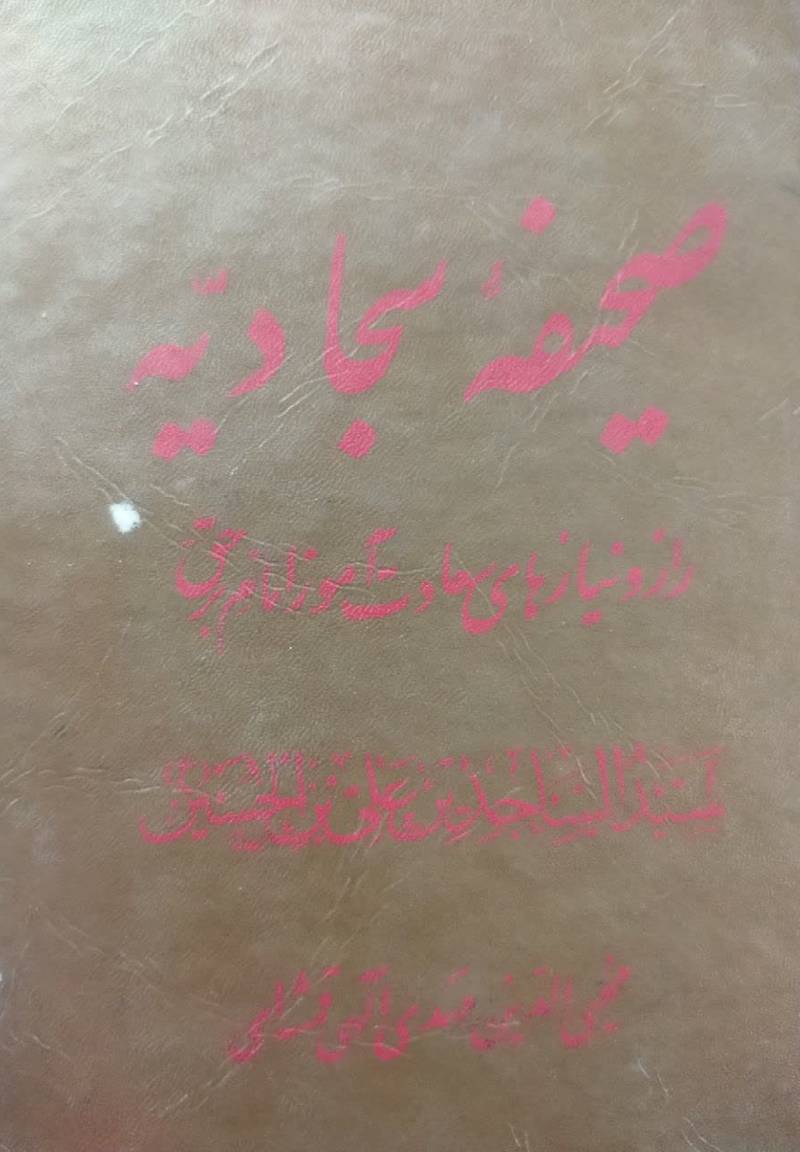 صحیفهٔ سجادیّه
راز و نیازهای سعادت آموز امام بر حق
سیدالساجدین علی بن الحسین
محیی الدین مهدی الهی قمشه‌ای